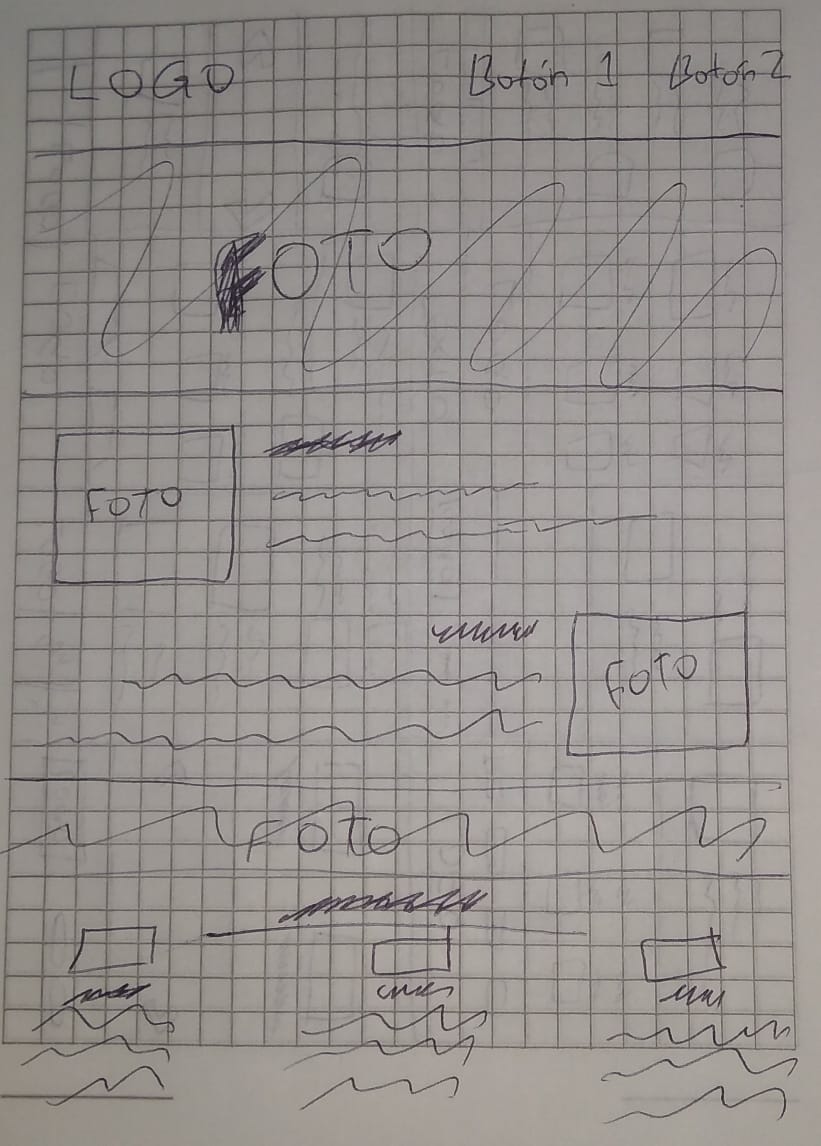 LOGO Botón 1 Botón 2
FOTO
FOTO
FOTO
FOTO